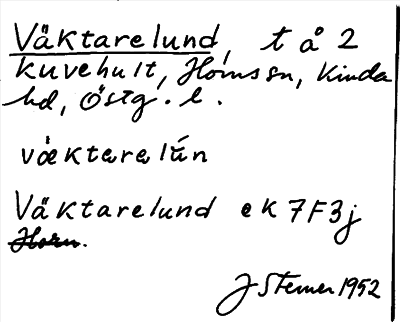 Väktarelund, t å 2
Kuvehult, Horns sn, Kinda
hd, Östg. l.
vä́ktarelún
Väktarelund ek 7F3j
Horn.
J Sterner 1952